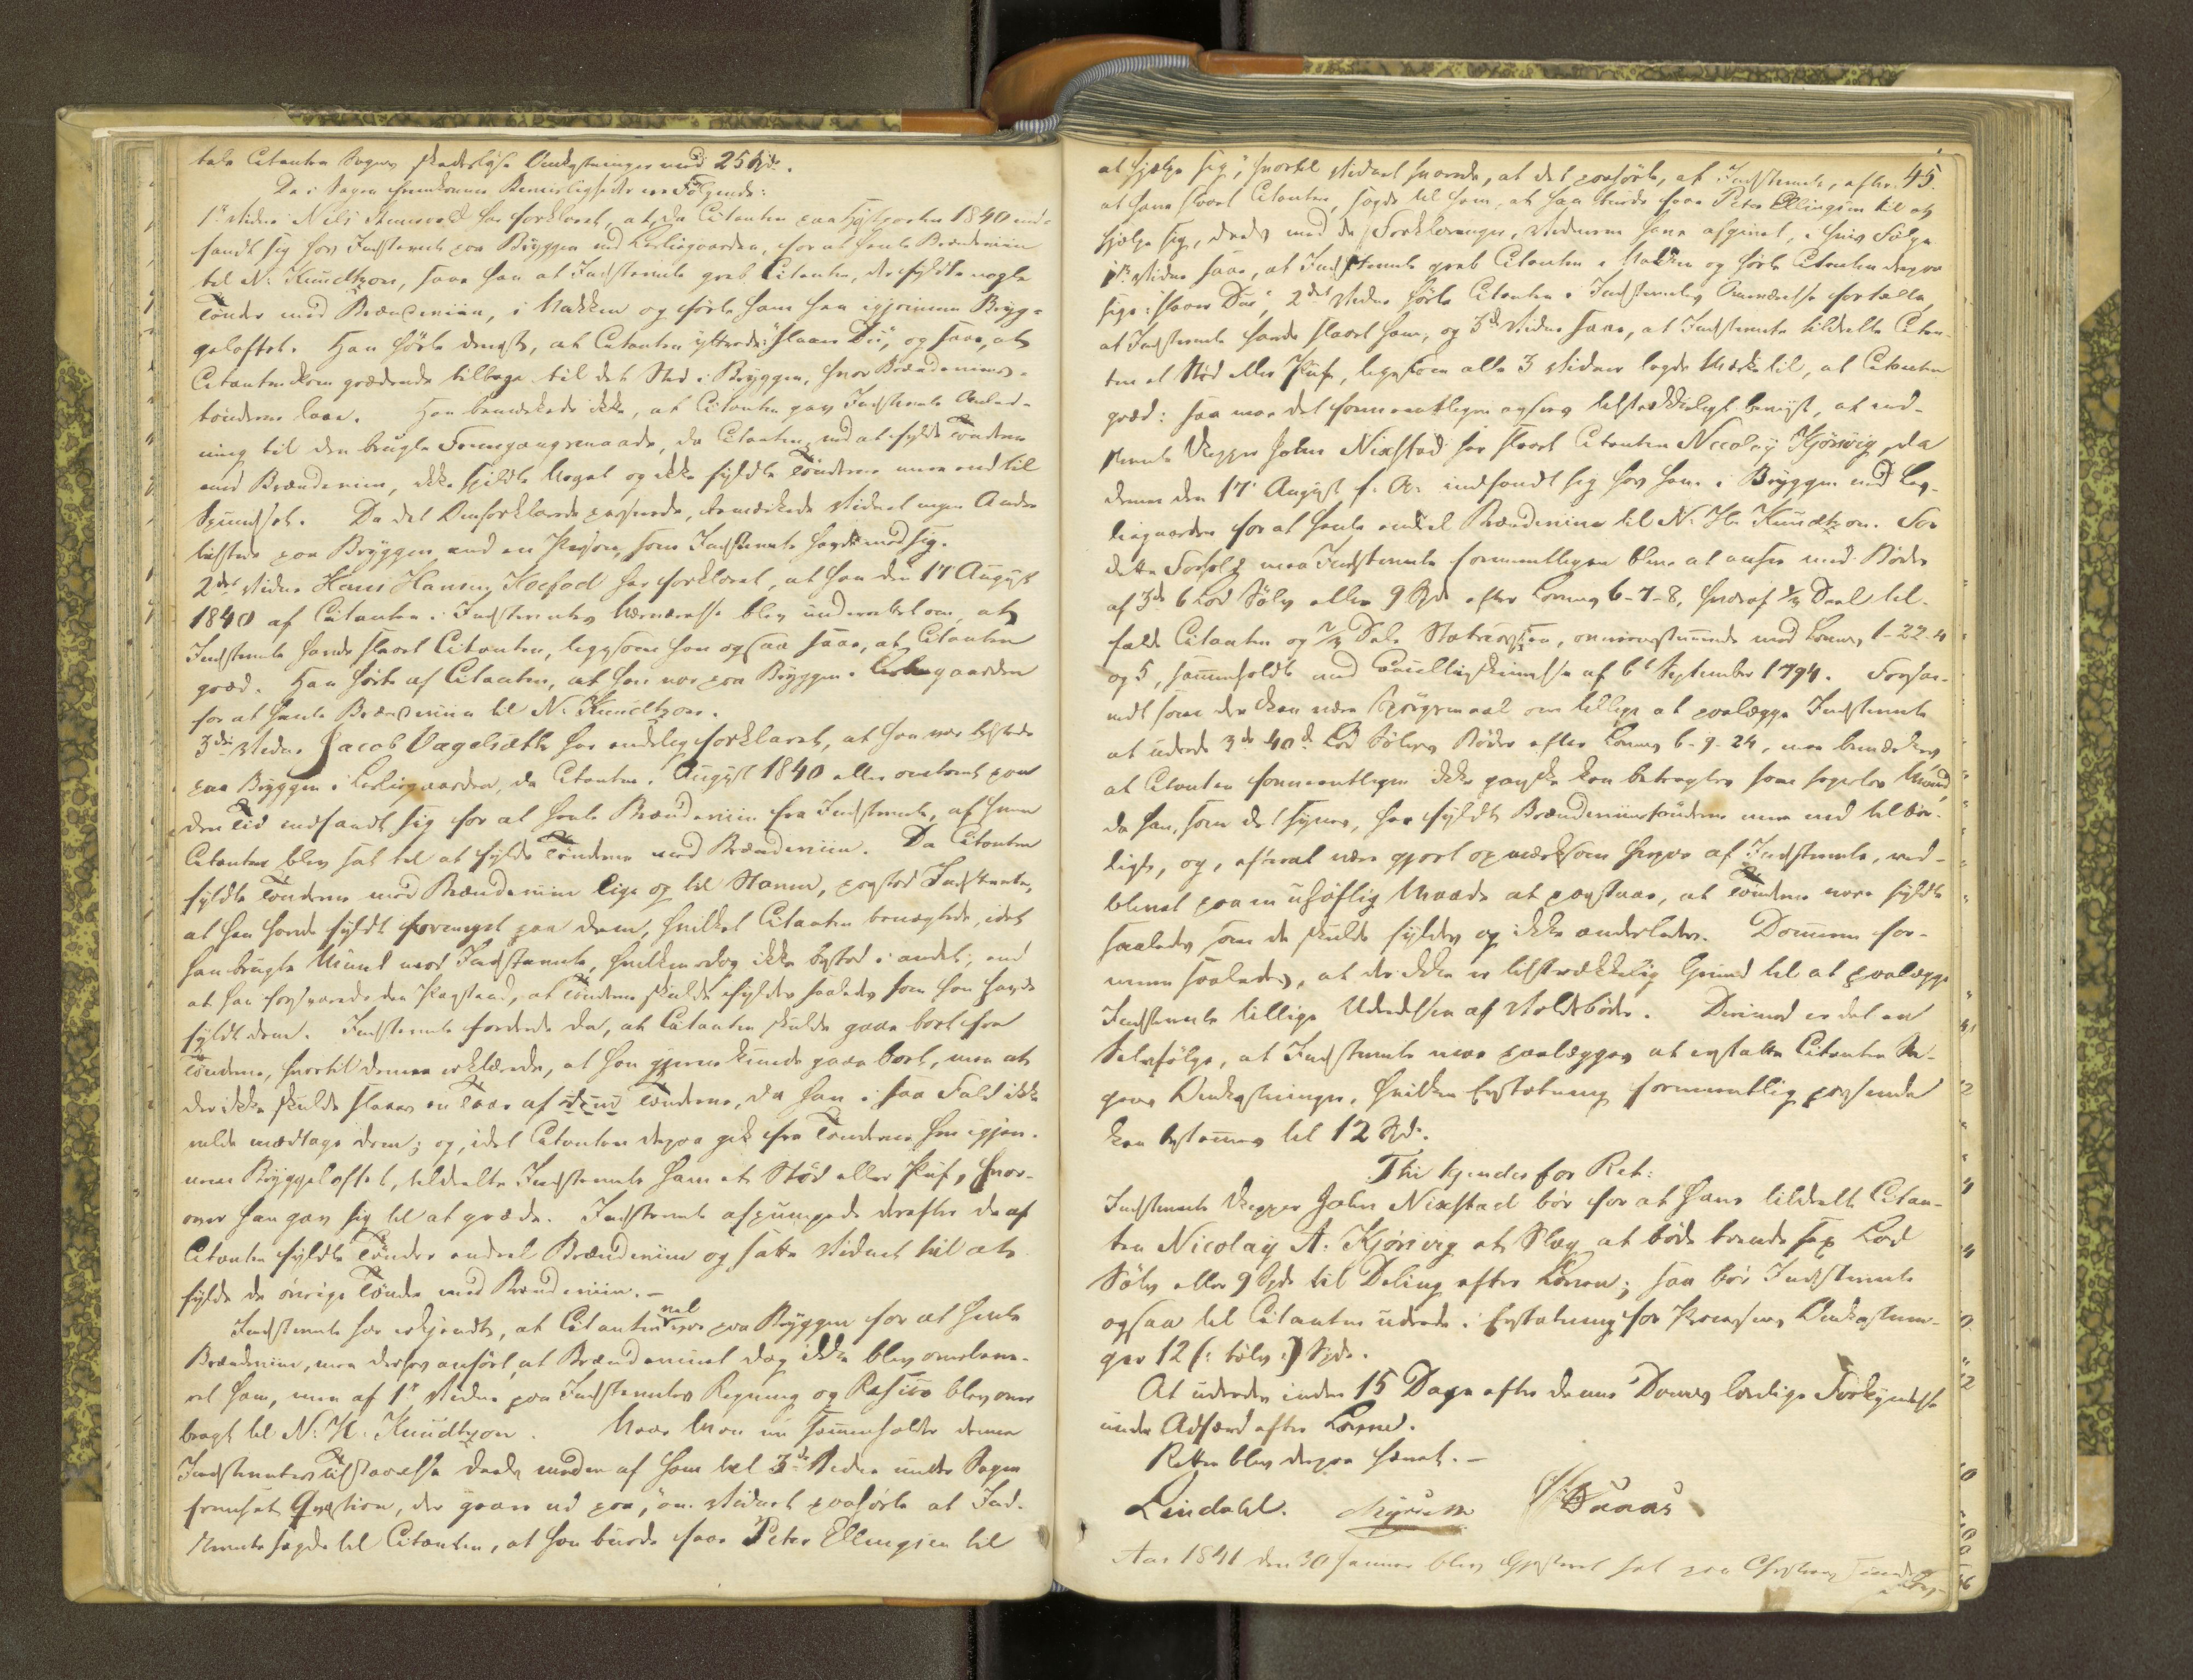 tale Citanten Sagens skadesløse Omkostninger med 25 Spd.
De i Sagen fremkomne Beviisligheder ere Følgende:
1ste Vidne Nils har forklaret, at, da Citanten paa Høstparten 1840 ind-
fandt sig hos Indstevnte paa Bryggen ved Leslisgaarden, for at hente Brændeviin
til N. Knudtzon, saae han at Indstevnte greb Citanten, der fyldte nogle
Tønder med Brændeviin, i Nakken og førte ham hen igjennem Bryg-
geloftet. Han hørte dengang, at Citanten yttrede: "slaaer Du", og saae, at
Citanten kom grædende tilbage til det Sted i Bryggen, hvor Brændeviins-
tønderne laae. Han bemærkede ikke, at Citanten gav Indstevnte Anled-
ning til den brugte Fremgangsmaade, da Citanten ved at fylde Tønderne
med Brændeviin, ikke spildte Noget og ikke fyldte Tønderne mere end til
Spundset. Da det Omforklarede passerede, bemærkede Vidnet ingen Andre
tilstede paa Bryggen end en Person, som Indstevnte havde med sig.
2det Vidne Hans Hansen Hoefod har forklaret, at han den 17 August
1840 af Citanten i Indstevntes Nærværelse blev underrettet om, at
Indstevnte havde slaaet Citanten, ligesom han ogsaa saae, at Citanten
græd. Han hørte af Citanten, at han var paa Bryggen i Leslisgaarden
for at hente Brændeviin til N. Knudtzon.
3die Vidne Jacob Vagelsæth har endelig forklaret, at han var tilstede
paa Bryggen i Leslisgaarden, da Citanten i August 1840 eller omtrent paa
den Tid indfandt sig for at hente Brændeviin fra Indstevnte, af hvem
Citanten blev sat til at fylde Tønderne med Brændeviin. Da Citanten
fyldte Tønderne med Brændeviin lige op til Stavene, paastod Indstevnte,
at han havde fyldt formeget paa dem, hvilket Citanten benægtede, idet
han brugte Mund mod Indstevnte, hvilken dog ikke bestod i andet, end
at han forsvarede den Paastand, at Tønderne skulde fyldes saaledes som han havde
fyldt dem. Indstevnte fordrede da, at Citanten skulde gaae bort fra
Tønderne, hvortil denne erklærede, at han gjerne kunde gaae bort, men at
der ikke skulde slaaes en Taar af disse Tønderne, da han i saa Fald ikke
vilde modtage dem; og, idet Citanten derpaa gik fra Tønderne hen igjen-
nem Bryggeloftet, tildeelte Indstevnte ham et Stød eller Puf, hvor-
over han gav sig til at græde. Indstevnte afpumpede derefter de af
Citanten fyldte Tønder endeel Brændeviin og satte Vidnet til at
fylde de øvrige Tønder med Brændeviin. -
Indstevnte har erkjendt, at Citanten vel var paa Bryggen for at hente
Brændeviin, men derhos anført, at Brændevinet dog ikke blev overleve-
ret ham, men af 1ste Vidne paa Indstevntes Regning og Risico blev over
bragt til N. H. Knudtzon. Naar Man nu sammenholder denne
Indstevntes Tilstaaelse deels med den af ham til 3die Vidne under Sagen
fremsat Qvæstion, der gaaer ud paa, "om Vidnet paahørte at Ind-
stevnte sagde til Citanten, at han burde faae Peter Ellingsen til
45.
at hjelpe sig", hvortil Vidnet svarede, at det paahørte, at Indstevnte, efter
at have slaaet Citanten, sagde til ham, at han burde faae Peter Ellingsen til at
hjelpe sig, deels med de Forklaringer, Vidnerne have afgivet, i hvis Følge
1ste Vidne saae, at Indstevnte greb Citanten i Nakken og hørte Citanten derpaa
sige: "slaaer Du", 2det Vidne hørte Citanten i Indstevntes Nærværelse fortælle,
at Indstevnte havde slaaet ham, og 3die Vidne saae, at Indstevnte tildeelte Citan-
ten et Stød eller Puf, ligesom alle 3 Vidner lagde Mærke til, at Citanten
græd: saa maa det formeentligen ansees tilstrækkeligt beviist, at Ind-
stevnte Skipper John Nixstad har slaaet Citanten Nicolay Kjørsvig, da
denne den 17 August f. A. indfandt sig hos ham i Bryggen ved Les-
lisgaarden for at hente endeel Brændeviin til N. H. Knudtzon. For
dette Forhold maa Indstevnte formeentligen blive at ansee med Bøder
af 3de 6 Lod Sølv eller 9 Spd. efter Lovens 6-7-8, hvoraf 1/3 Deel til-
falde Citanten og 2/3 Dele Statscassen, overeensstemmende med Lovens 1-22-4
og 5, sammenholdt med Cancelliskrivelse af 6te September 1794. Forsaa-
vidt som der kan være Spørgsmaal om tillige at paalægge Indstevnte
at udrede 3de 40de Lod Sølvs Bøder efter Lovens 6-9-24, maa bemærkes
at Citanten formeentligen ikke ganske kan betragtes som sagesløs Mand,
da han, som det synes, har fyldt Brændeviinstønderne mere end tilbør-
ligt, og, efterat være gjort opmærksom herpaa af Indstevnte, ved-
blevet paa en uhøflig Maade at paastaae, at Tønderne vare fyldte
saaledes som de skulde fyldes og ikke anderledes. Dommeren for-
mener saaledes, at der ikke er tilstrækkelig Grund til at paalægge
Indstevnte tillige Udredelsen af Voldsbøder. Derimod er det en
Selvfølge, at Indstevnte maa paalægges at erstatte Citanten Sa-
gens Omkostninger, hvilken Erstatning formeentlig passende
kan bestemmes til 12 Spd.
Thi kjendes for Ret:
Indstevnte Skipper John Nixstad bør for at have tildeelt Citan-
ten Nicolay A. Kjørsvig et Slag at bøde trende sex Lod
Sølv eller 9 Spd. til Deling efter Loven; saa bør Indstevnte
ogsaa til Citanten udrede i Erstatning for Processens Omkostnin-
ger 12 (: tolv :) Spd.
At udredes inden 15 Dage efter denne Doms lovlige Forkyndelse
under Adfærd efter Loven.
Retten blev derpaa hævet. -
Lindahl.
Aar 1841 den 30 Januar blev Gjesteret sat paa